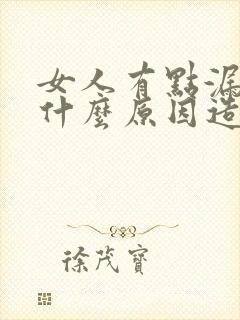 女人有點漏
什麼原因造
徐茂寶